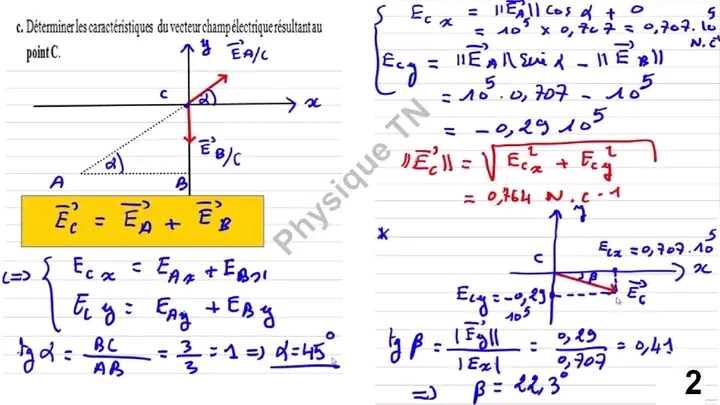 c. Déterminer les caractéristiques du vecteur champ électrique résultant au
point C.
y
E⃗ A/C
C
α)
x
E⃗ B/C
α)
A
B
E⃗c = E⃗A + E⃗B
<=> { Ec x = EAx + EBx
Ec y = EAy + EBy
tg α = BC/AB = 3/3 = 1 => α=45°
{ Ec x = ||E⃗A|| cos α + 0
= 10⁵ × 0,707 = 0,707.10⁵
N.C⁻¹
Ecy = ||E⃗A|| sin α - ||E⃗B||
= 10⁵ . 0,707 - 10⁵
= - 0,29 10⁵
||E⃗c|| = √Ecx² + Ecy²
= 0,764 N.C-1
*
y
C
Ecx = 0,707.10⁵
x
β
E⃗c
Ecy = -0,29
10⁵
tg β = ||E⃗y||/|Ex| = 0,29/0,707 = 0,41
=> β = 22,3°
2
Physique TN